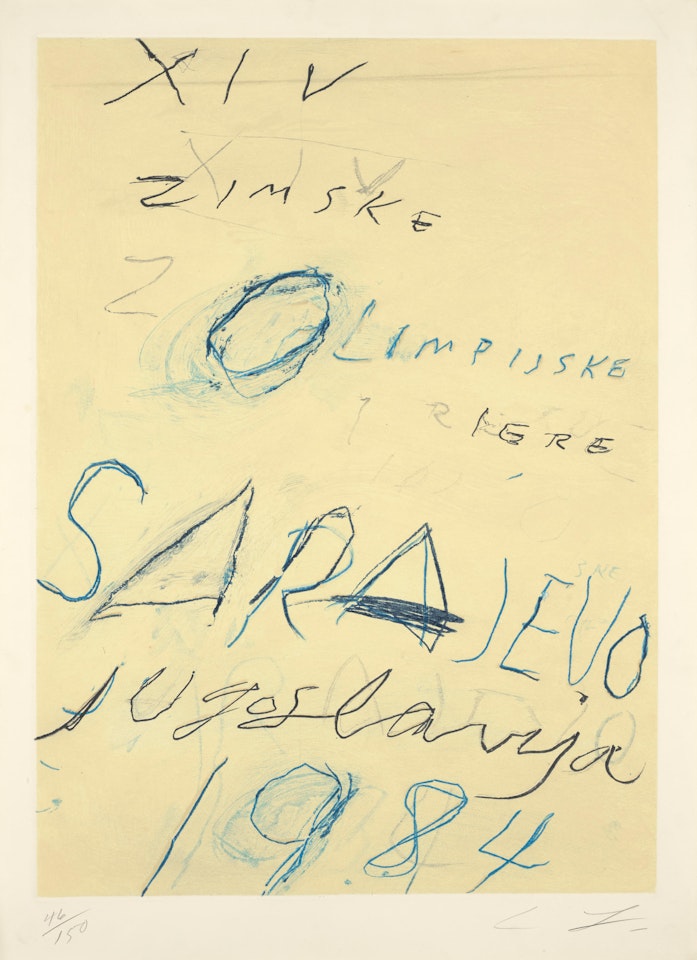 XIV
XIV
ZIMSKE
Z
OLIMPIJSKE
IGRE
SARAJEVO
Jugoslavija
1984
46/150